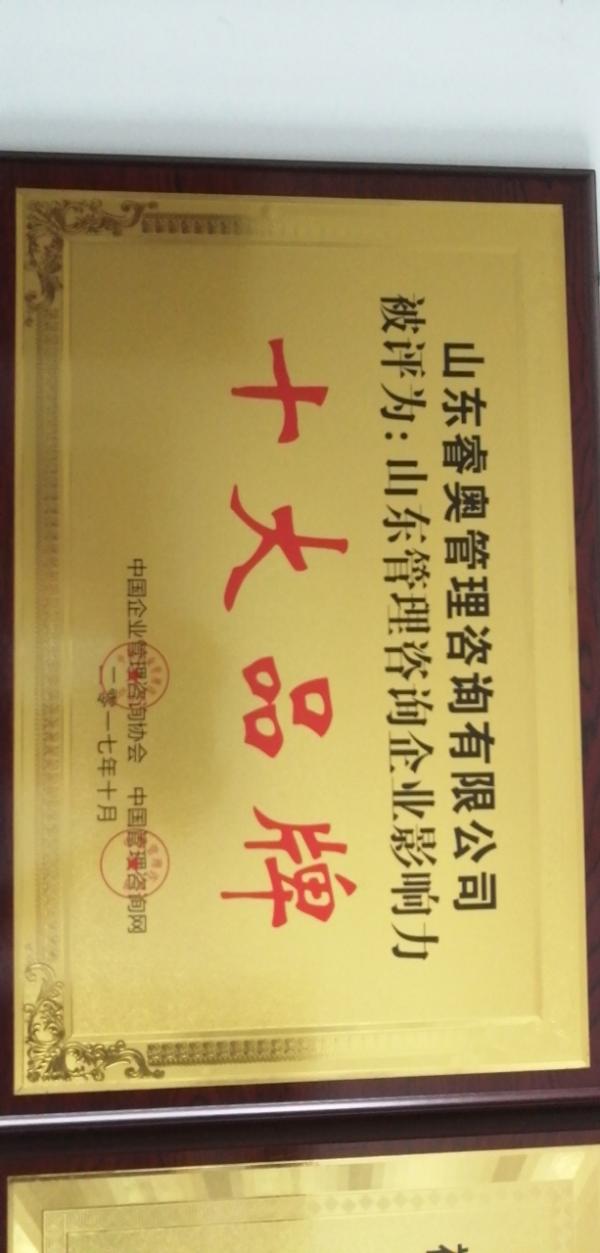 山东睿奥管理咨询有限公司
被评为：山东管理咨询企业影响力
十大品牌
中国企业管理咨询协会 中国管理咨询网
二零一七年十月